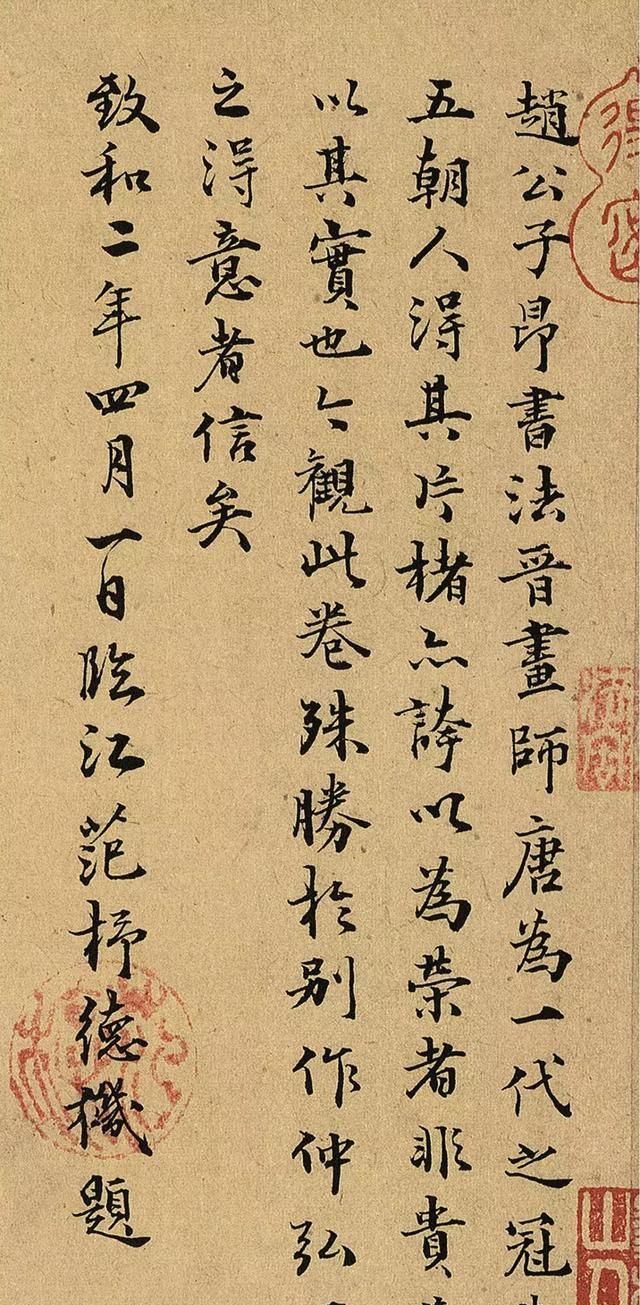 趙公子昂書法晉畫師唐為一代之冠
五朝人得其片楮亦誇以為榮者非貴
以其實也今觀此卷殊勝於別作仲弘
之得意者信矣
致和二年四月一日臨江范梈德機題